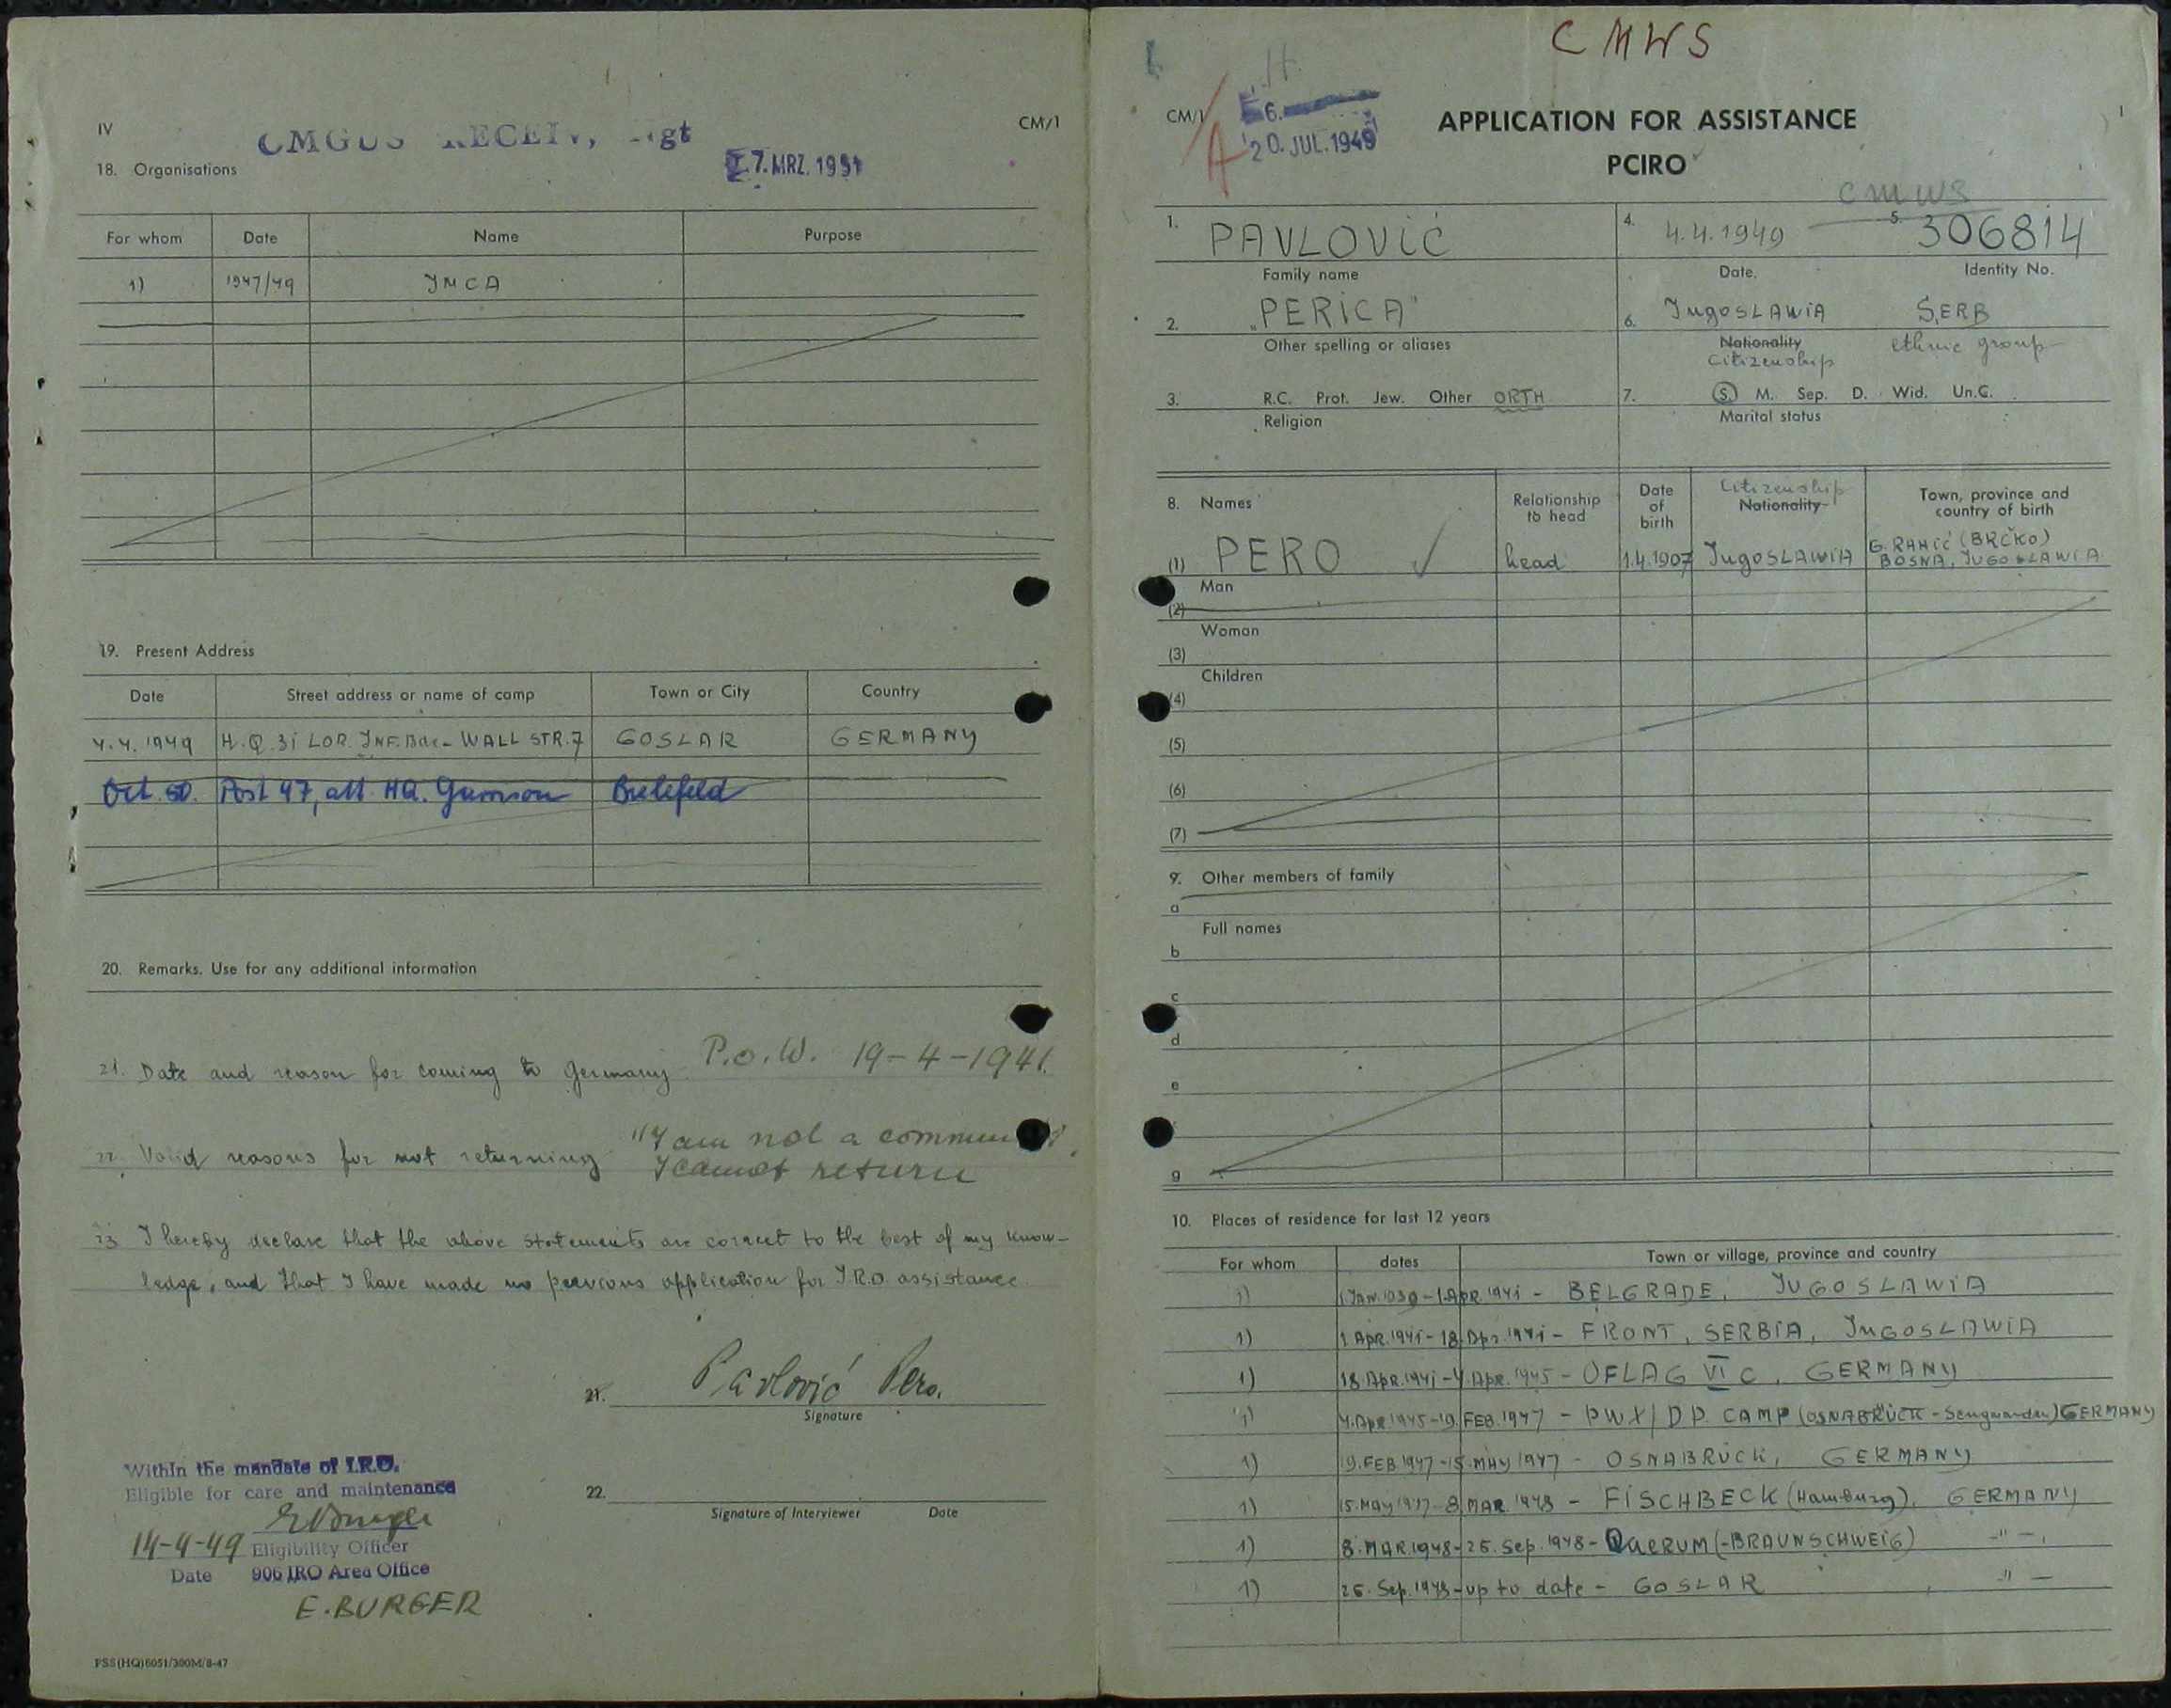 IV
CM/1
18. Organisations
7. MRZ. 1951
For whom Date Name Purpose
1) 1947/49 YMCA
19. Present Address
Date Street address or name of camp Town or City Country
4.4.1949 H.Q. 31 LOR. INF. BDE - WALL STR. 7 GOSLAR GERMANY
Oct. 50. Post 47, att. HQ. Garrison Bielefeld
20. Remarks. Use for any additional information
21. Date and reason for coming to Germany P.O.W. 19-4-1941.
22. Valid reasons for not returning "I am not a
I cannot return
23. I hereby declare that the above statements are correct to the best of my know-
ledge, and that I have made no previous application for I.R.O. assistance.
21. Pavlović Pero.
Signature
22.
Signature of Interviewer Date
Within the mandate of I.R.O.
Eligible for care and maintenance
14-4-49 Eligibility Officer
Date 906 IRO Area Office
E. BURGER
PSS(HQ)6051/300M/8-47
CMWS
CM/1
20. JUL. 1949
APPLICATION FOR ASSISTANCE
PCIRO
CMWS
1. PAVLOVIĆ 4. 4.4.1949 5. 306814
Family name Date. Identity No.
2. "PERICA" 6. JugoSLAWiA SERB
Other spelling or aliases Nationality ethnic group
Citizenship
3. R.C. Prot. Jew. Other ORTH 7. S. M. Sep. D. Wid. Un.C.
Religion Marital status
8. Names Relationship to head Date of birth Citizenship Nationality Town, province and country of birth
(1) PERO head 1.4.1907 JugoSLAWiA G. RAHIĆ (BRČKO) BOSNA, JUGOSLAWIA
Man
(2)
Woman
(3)
Children
(4)
(5)
(6)
(7)
9. Other members of family
a
Full names
b
c
d
e
g
10. Places of residence for last 12 years
For whom dates Town or village, province and country
1) 1 JAN. 1939 - 1 APR. 1941 - BELGRADE, JUGOSLAWiA
1) 1 APR. 1941 - 18 Apr. 1941 - FRONT, SERBIA, JUGOSLAWiA
1) 18 Apr. 1941 - 4 Apr. 1945 - OFLAG VI C, GERMANY
1) 4. Apr 1945 - 19. FEB. 1947 - PWX/DP. CAMP (OSNABRÜCK - Sengwarden) GERMANY
1) 19. FEB 1947 - 15. MAY 1947 - OSNABRÜCK, GERMANY
1) 15. MAY 1947 - 8. MAR. 1948 - FISCHBECK (Hamburg), GERMANY
1) 8. MAR. 1948 - 26. Sep. 1948 - QUERUM (-BRAUNSCHWEIG) -"-
1) 26. Sep. 1948 - up to date - GOSLAR -"-